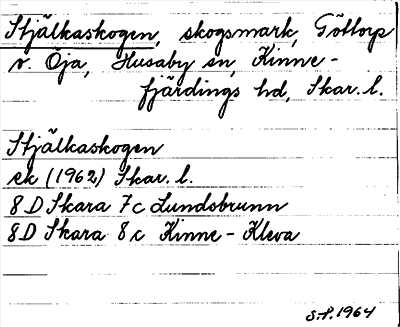 Stjälkaskogen, skogsmark, Göttorp
v. Öja, Husaby sn, Kinne-
fjärdings hd, Skar. l.
Stjälkaskogen
ek (1962) Skar. l.
8 D Skara 7 c Lundsbrunn
8D Skara 8 c Kinne-Kleva
S.P. 1964